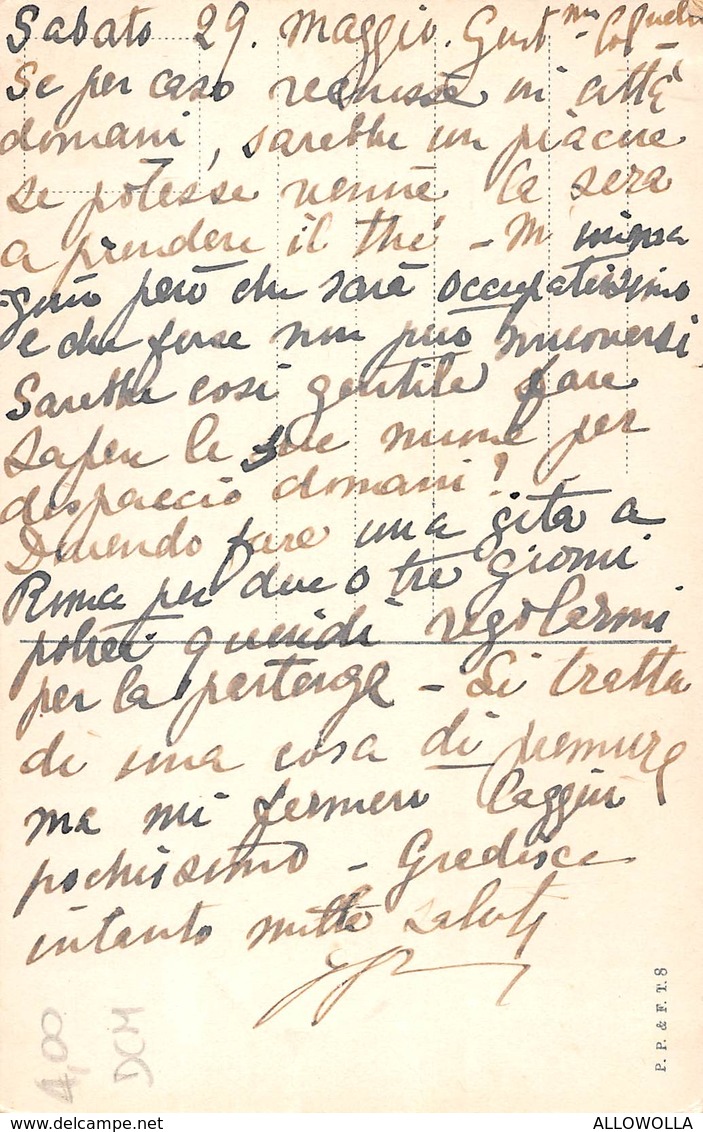 Sabato 29. Maggio.
Se per caso venisse in città
domani, sarebbe un piacere
se potesse venire la sera
a prendere il thé - M' immagino
però che sarà occupatissimo
e che forse non può muoversi,
Sarebbe così gentile fare
sapere le sue nuove per
dispaccio domani!
Dovendo fare una gita a
Roma per due o tre giorni
potrei quindi regolarmi
per la partenza - Si tratta
di una cosa di premura
ma mi fermerò laggiù
pochissimo - Gradisca
intanto mille saluti
P. P. & F. T. 8
4,00
DCM
ALLOWOLLA